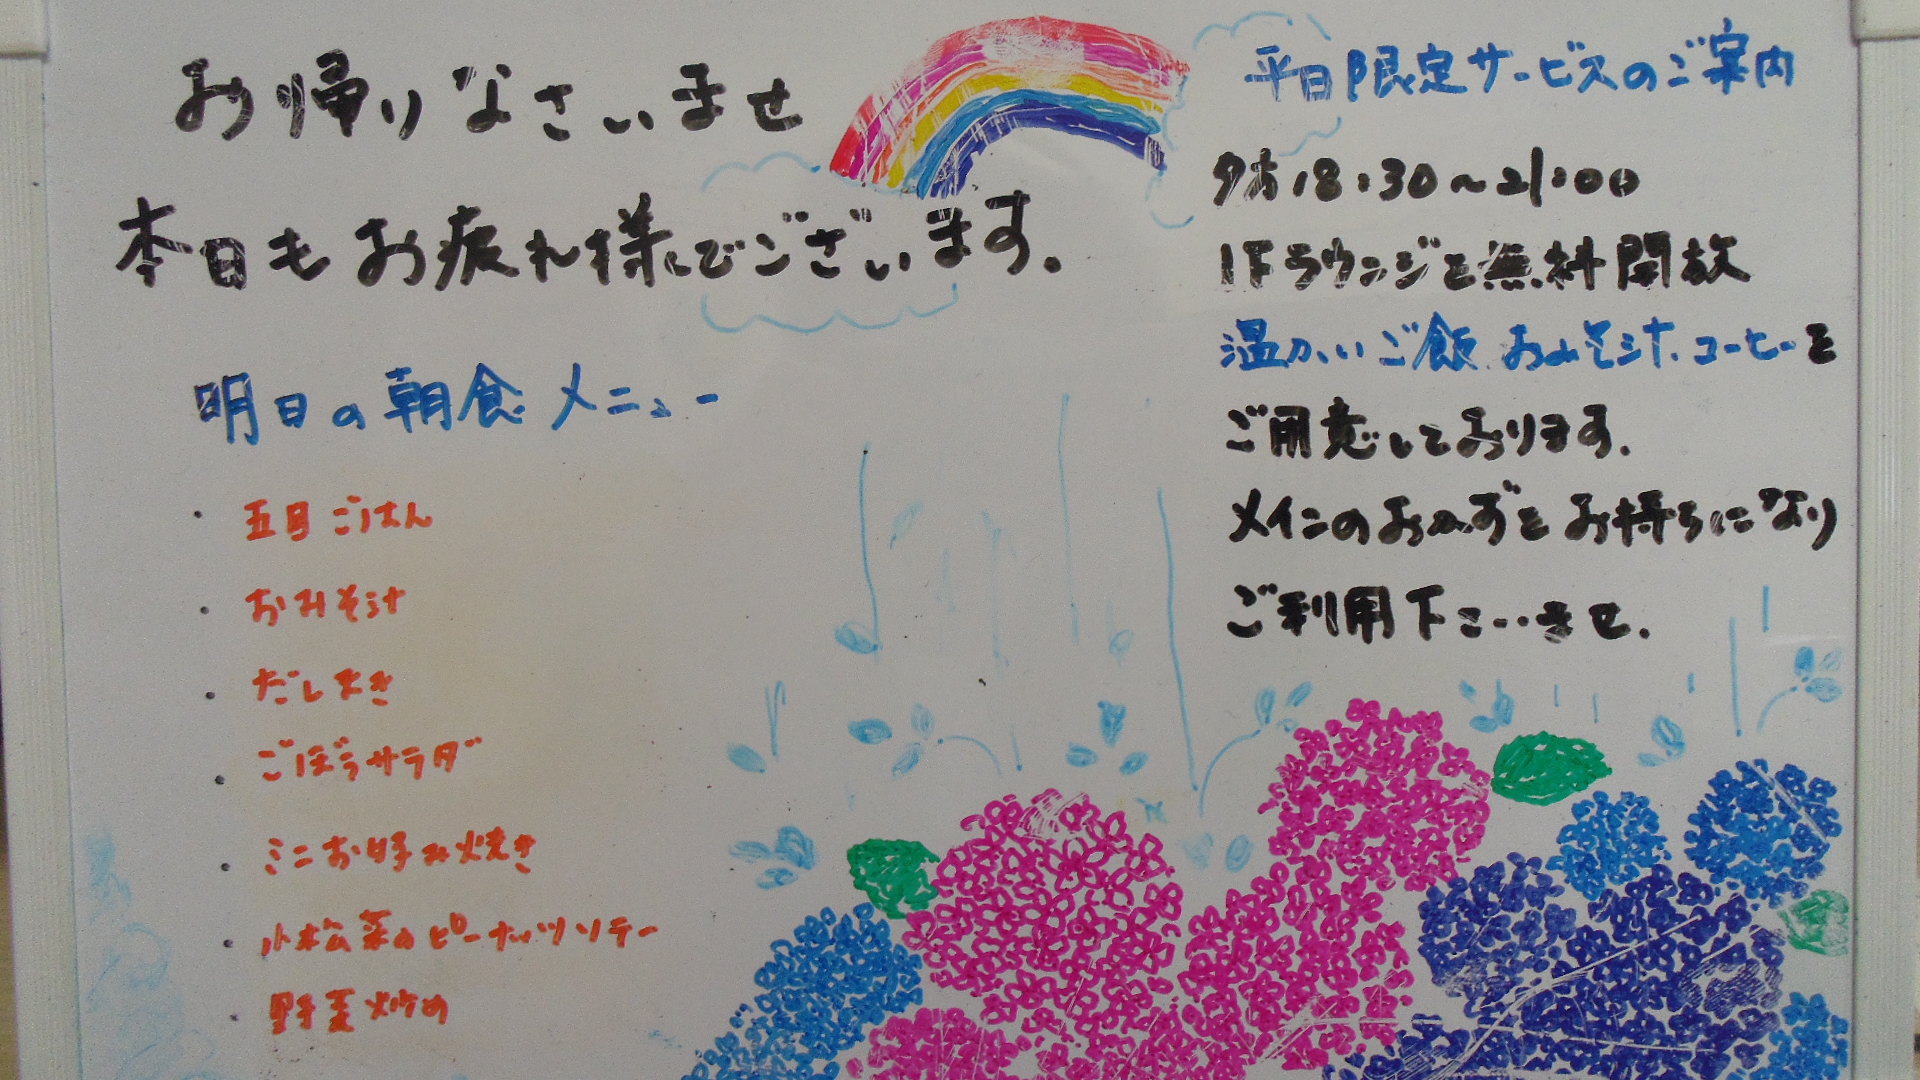 お帰りなさいませ
本日もお疲れ様でございます。
明日の朝食メニュー
・五目ごはん
・おみそ汁
・だしまき
・ごぼうサラダ
・ミニお好み焼き
・小松菜のピーナッツソテー
・野菜炒め
平日限定サービスのご案内
夕方18:30～21:00
1Fラウンジを無料開放
温かいご飯、おみそ汁、コーヒーを
ご用意しております。
メインのおかずをお持ちになり
ご利用下さいませ。